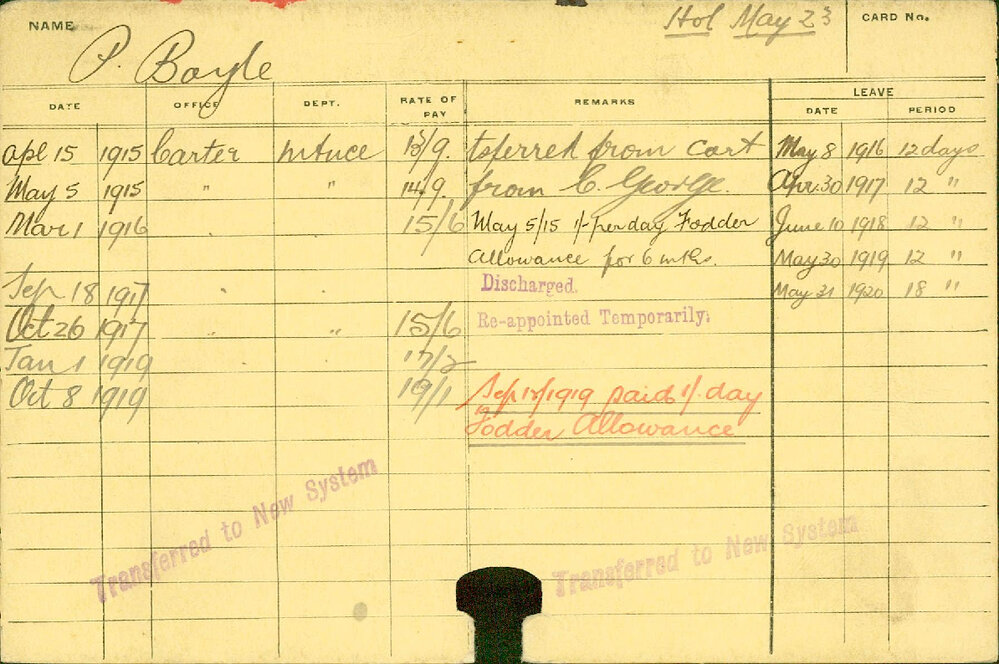 NAME P. Boyle Hol May 23 CARD No.
DATE OFFICE DEPT. RATE OF PAY REMARKS LEAVE DATE PERIOD
Apl 15 1915 Carter Mtnce 13/9. tsferred from Cart May 8 1916 12 days
May 5 1915 " " 14/9. from C. George. Apr. 30 1917 12 "
Mar 1 1916 " 15/6 May 5/15 1/- per day Fodder June 10 1918 12 "
Allowance for 6 mths. May 30 1919 12 "
Sep 18 1917 " Discharged. May 31 1920 18 "
Oct 26 1917 " " 15/6 Re-appointed Temporarily.
Jan 1 1919 17/2
Oct 8 1919 19/1 Sep 1919 paid 1/. day
Fodder Allowance
Transferred to New System
Transferred to New System